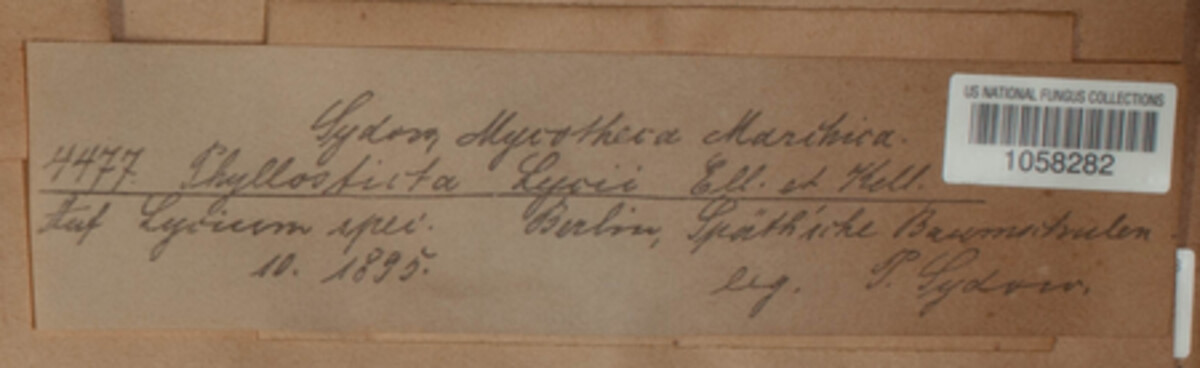 Sydow, Mycotheca Marchica.
4477. Phyllosticta Lycii Ell. et Kell.
Auf Lycium spec. Berlin, Späth'sche Baumschulen.
10. 1895. leg. P. Sydow.
US NATIONAL FUNGUS COLLECTIONS
1058282